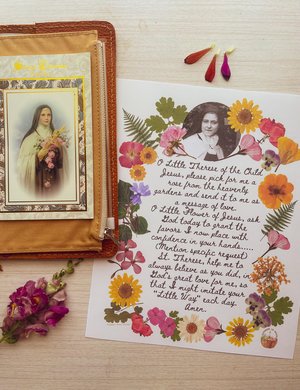 O Little Therese of the Child
Jesus, please pick for me a
rose from the heavenly
gardens and send it to me as
a message of love.
O Little Flower of Jesus, ask
God today to grant the
favors I now place with
confidence in your hands.....
(Mention specific request)
St. Therese, help me to
always believe as you did, in
God's great love for me, so
that I might imitate your
"Little Way" each day.
Amen.